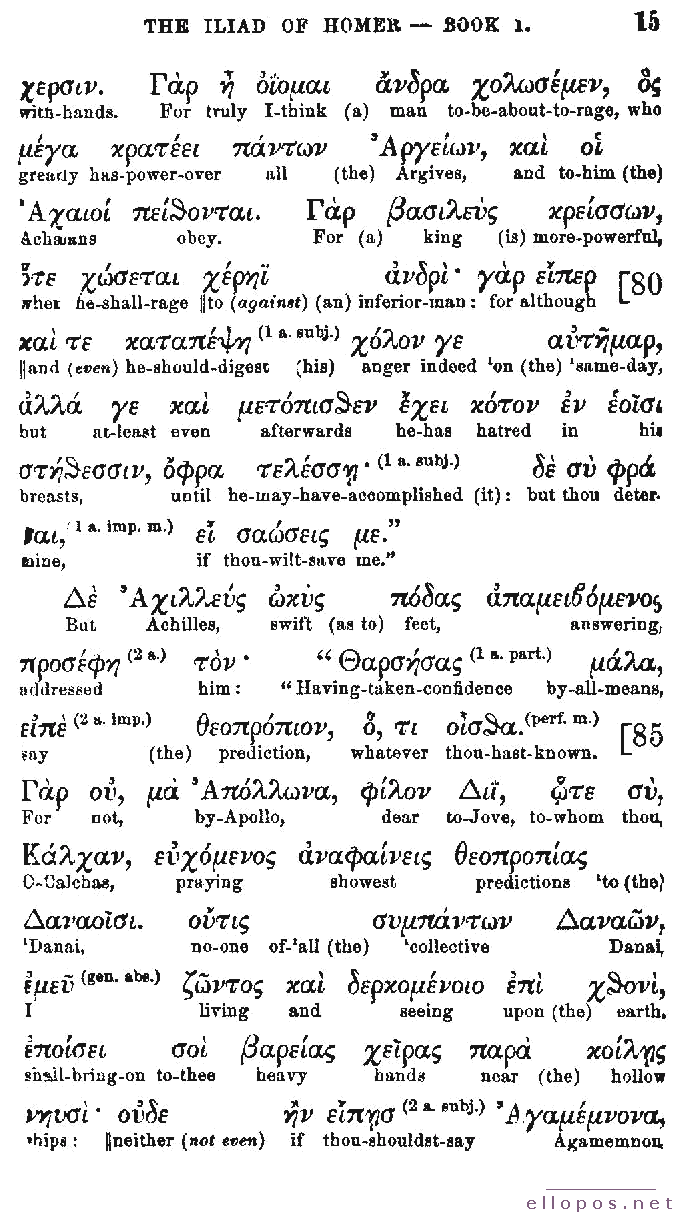 THE ILIAD OF HOMER — BOOK 1. 15
χερσιν. Γὰρ ἦ ὀΐομαι ἄνδρα χολωσέμεν, ὃς
with-hands. For truly I-think (a) man to-be-about-to-rage, who
μέγα κρατέει πάντων Ἀργείων, καὶ οἱ
greatly has-power-over all (the) Argives, and to-him (the)
Ἀχαιοί πείθονται. Γὰρ βασιλεὺς κρείσσων,
Achæans obey. For (a) king (is) more-powerful,
ὅτε χώσεται χέρηϊ ἀνδρὶ· γὰρ εἴπερ [80
when he-shall-rage ||to (against) (an) inferior-man: for although
καί τε καταπέψῃ (1 a. subj.) χόλον γε αὐτῆμαρ,
||and (even) he-should-digest (his) anger indeed 'on (the) 'same-day,
ἀλλά γε καὶ μετόπισθεν ἔχει κότον ἐν ἑοῖσι
but at-least even afterwards he-has hatred in his
στήθεσσιν, ὄφρα τελέσσῃ· (1 a. subj.) δὲ σὺ φρά
breasts, until he-may-have-accomplished (it): but thou deter-
σαι, (1 a. imp. m.) εἴ σαώσεις με.”
mine, if thou-wilt-save me.”
Δὲ Ἀχιλλεύς ὠκὺς πόδας ἀπαμειβόμενος
But Achilles, swift (as to) feet, answering,
προσέφη (2 a.) τὸν· “Θαρσήσας (1 a. part.) μάλα,
addressed him: “Having-taken-confidence by-all-means,
εἰπὲ (2 a. imp.) θεοπρόπιον, ὅ, τι οἶσθα. (perf. m.) [85
say (the) prediction, whatever thou-hast-known.
Γὰρ οὐ, μὰ Ἀπόλλωνα, φίλον Διῒ, ᾧτε σύ,
For not, by-Apollo, dear to-Jove, to-whom thou,
Κάλχαν, εὐχόμενος ἀναφαίνεις θεοπροπίας
O-Calchas, praying showest predictions 'to (the)
Δαναοῖσι. οὔτις συμπάντων Δαναῶν,
'Danai, no-one of-'all (the) 'collective Danai,
ἐμεῦ (gen. abs.) ζῶντος καὶ δερκομένοιο ἐπὶ χθονὶ,
I living and seeing upon (the) earth,
ἐποίσει σοὶ βαρείας χεῖρας παρὰ κοίλῃς
shall-bring-on to-thee heavy hands near (the) hollow
νηυσὶ· οὐδε ἢν εἴπῃσ (2 a. subj.) Ἀγαμέμνονα,
ships: ||neither (not even) if thou-shouldst-say Agamemnon,
ellopos.net